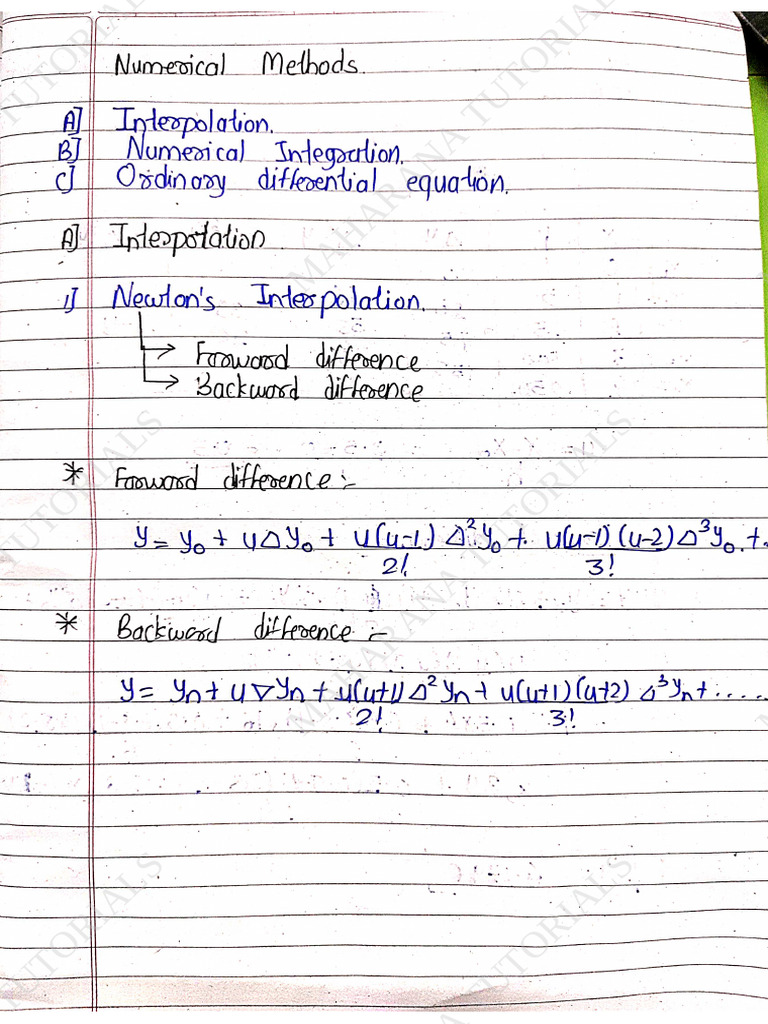 Numerical Methods.
A] Interpolation.
B] Numerical Integration.
C] Ordinary differential equation.
A] Interpolation
1] Newton's Interpolation.
→ Forward difference
→ Backward difference
* Forward difference :-
y = y₀ + u Δ y₀ + u(u-1)/2! Δ²y₀ + u(u-1)(u-2)/3! Δ³y₀ + ..
* Backward difference :-
y = yn + u ∇ yn + u(u+1)/2! Δ² yn + u(u+1)(u+2)/3! Δ³yn + .....
MAHARANA TUTORIALS